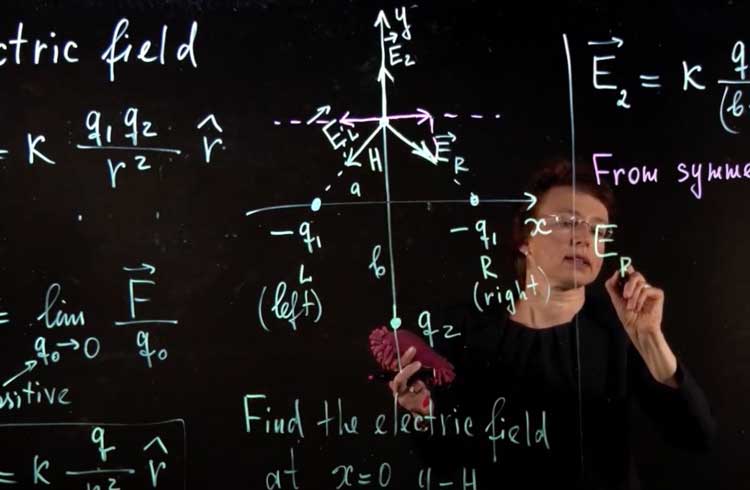 ctric field
= K q₁q₂ / r² r̂
= lim F⃗ / q₀
q₀→0
sitive
= K q / r² r̂
y
E⃗₂
E⃗_L
H
E⃗_R
a
-q₁
-q₁
x
L
R
(left)
b
(right)
q₂
Find the electric field
at x=0 y=H
E⃗₂ = K q
(b
From symme
E_R